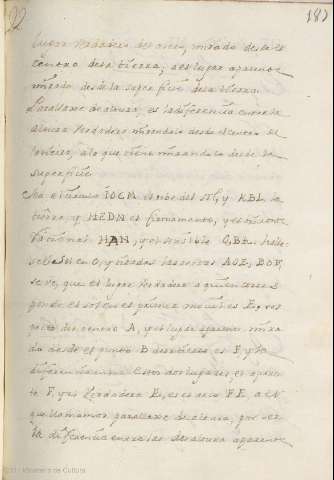 99 187
lugar verdadero del astro, mirado desde el
centro de la tierra; a el lugar aparente
mirado desde la superficie de la tierra.
Parallaxe de altura, es la diferencia entre la
altura verdadera mirandolo desde el centro de
la tierra, a lo que tiene mirandolo desde la
superficie
Sea el circulo IOCM el orbe del sol, y KBL la
tierra, y HEDN el firmamento, y el orizonte
racional HAN, y el sensible O, B
sol en O, y tiradas las rectas AOE, BOF,
se ve, que el lugar verdadero a quien corres
ponde el sol en el primer movil es E, res
pecto del centro A, y el lugar aparente mira
do desde el punto B de la tierra es F, y la
diferencia entre estos dos lugares el aparen
te F, y el verdadero E, es el arco FE, a el
que llamamos parallaxe de altura, por ser
la diferencia entre las de altura aparente
Ministerio de Cultura